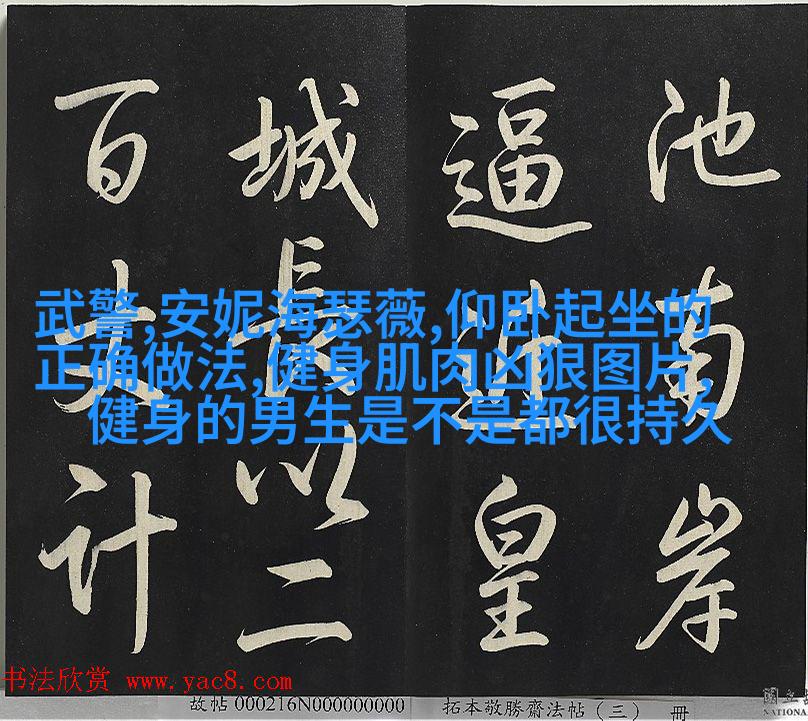 池南岸
逼近皇
城長以二
百丈計
武警,安妮海瑟薇,仰卧起坐的
正确做法,健身肌肉凶狠图片,
健身的男生是不是都很持久
书法欣赏 www.yac8.com
故帖 000216N000000000 拓本敬勝齋法帖（三） 冊
國立
NATIONA